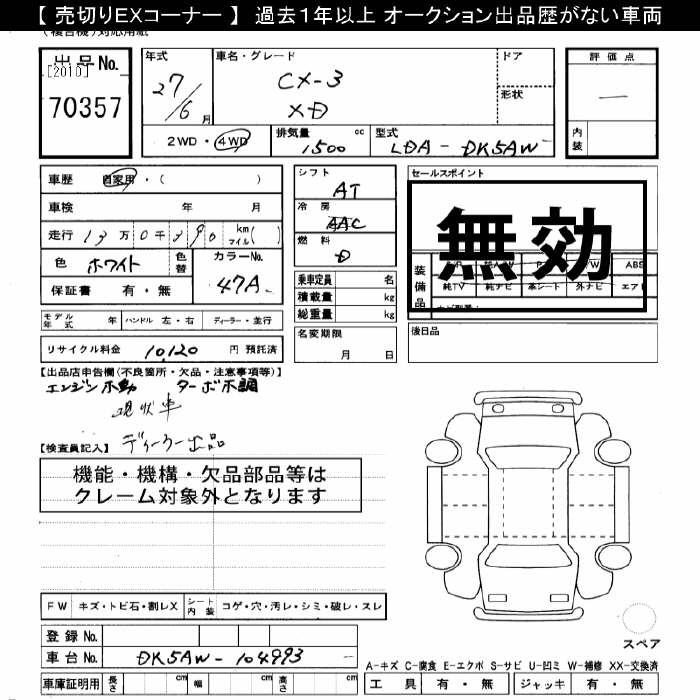 【 売切りEXコーナー 】 過去1年以上 オークション出品歴がない車両
出品No.
[2010]
70357
年式
27/6月
車名・グレード
CX-3
XD
ドア
形状
評価点
—
内装
2WD・4WD
排気量 1500 cc
型式 LDA - DK5AW
車歴 自家用・( )
車検 年 月
走行 13万0千390 km マイル( )
色 ホワイト 色替 カラーNo. 47A
保証書 有・無
シフト AT
冷房 AAC
燃料 D
乗車定員 名
積載量 kg
総重量 kg
セールスポイント
無効
装備品
ABS
純TV 純ナビ 革シート 外ナビ エアB
モデル年式 年 ハンドル 左・右 ディーラー・並行
名変期限
月 日
後日品
リサイクル料金 10,120 円 預託済
【出品店申告欄(不良箇所・欠品・注意事項等)】
エンジン不動 ターボ不調
現状車
【検査員記入】 ディーラー出品
機能・機構・欠品部品等は
クレーム対象外となります
FW キズ・トビ石・割レX シート内装 コゲ・穴・汚レ・シミ・破レ・スレ
登録No.
車台No. DK5AW - 104993
車庫証明用 長さ cm 幅 cm 高さ cm
スペア
A-キズ C-腐食 E-エクボ S-サビ U-凹ミ W-補修 XX-交換済
工具 有・無 ジャッキ 有・無